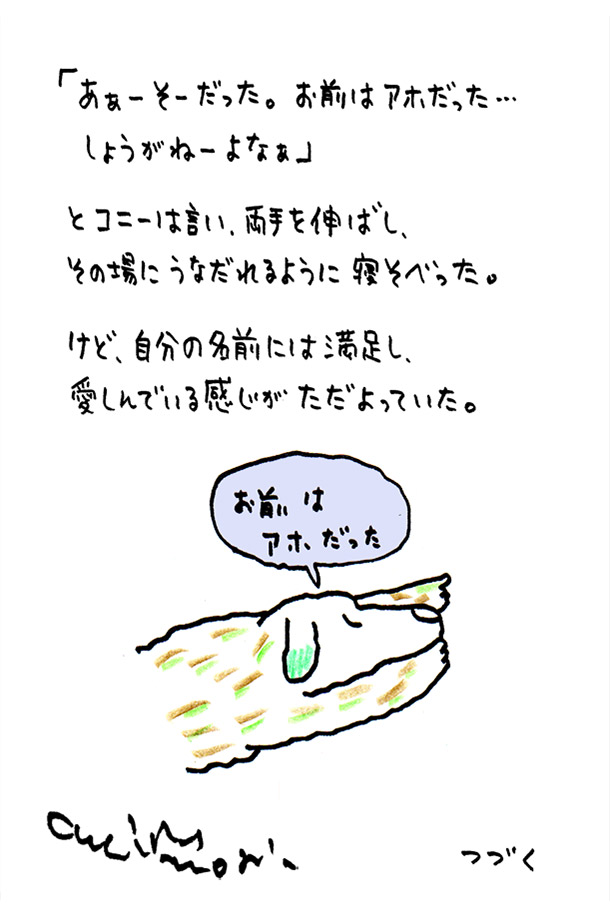 「あぁーそーだった。お前はアホだった…
しょうがねーよなぁ」
とコニーは言い、両手を伸ばし、
その場にうなだれるように寝そべった。
けど、自分の名前には満足し、
愛しんでいる感じがただよっていた。
お前は
アホだった
つづく